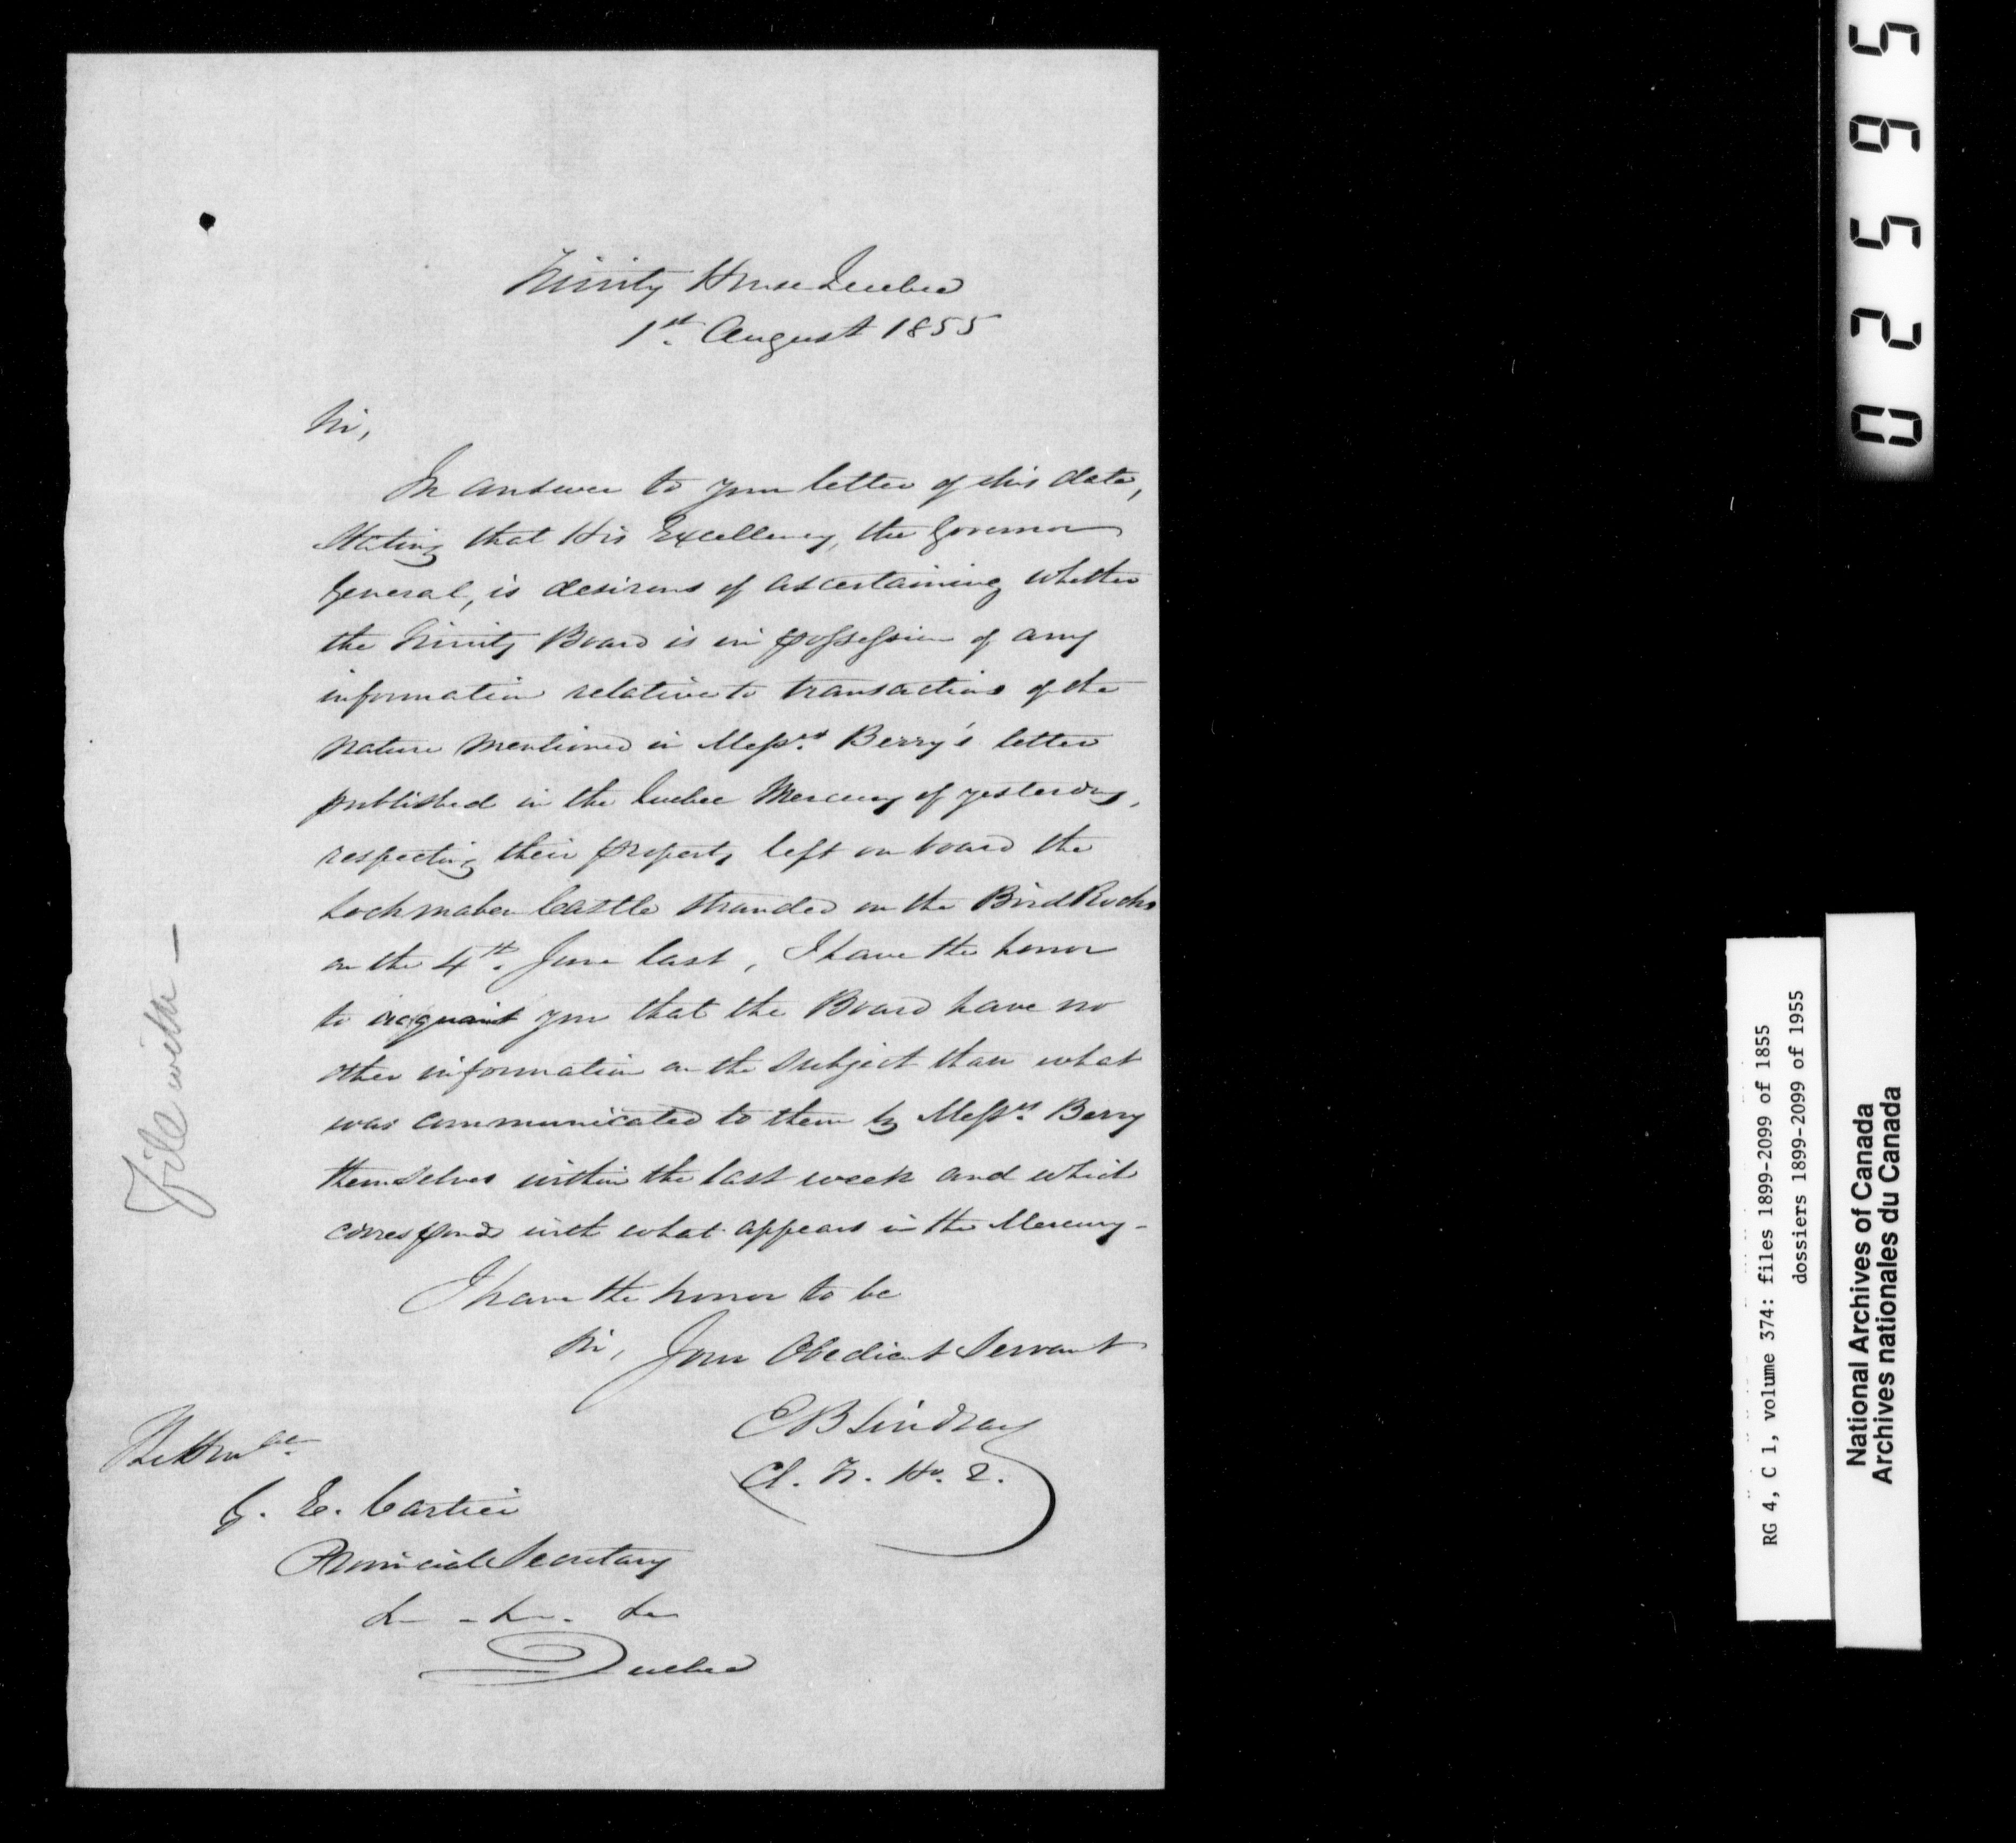 Trinity House Quebec
1st. August 1855
Sir,
In answer to your letter of this date,
Stating that His Excellency, the Governor
General, is desirous of ascertaining whether
the Trinity Board is in possession of any
information relative to transactions of the
nature mentioned in Messrs. Berry's letter
published in the Quebec Mercury of yesterday,
respecting their property left on board the
Lochmaben Castle stranded on the Bird Rocks
on the 4th. June last, I have the honor
to acquaint you that the Board have no
other information on the subject than what
was communicated to them by Messrs. Berry
themselves within the last week and which
corresponds with what appears in the Mercury-
I have the honor to be
Sir, Your Obedient Servant
E B Lindsay
Cl. T. Ho. Q.
The Honble.
G. E. Cartier
Provincial Secretary
&c - &c. &c
Quebec
File with —
025265
RG 4, C 1, volume 374: files 1899-2099 of 1855
dossiers 1899-2099 of 1955
National Archives of Canada
Archives nationales du Canada